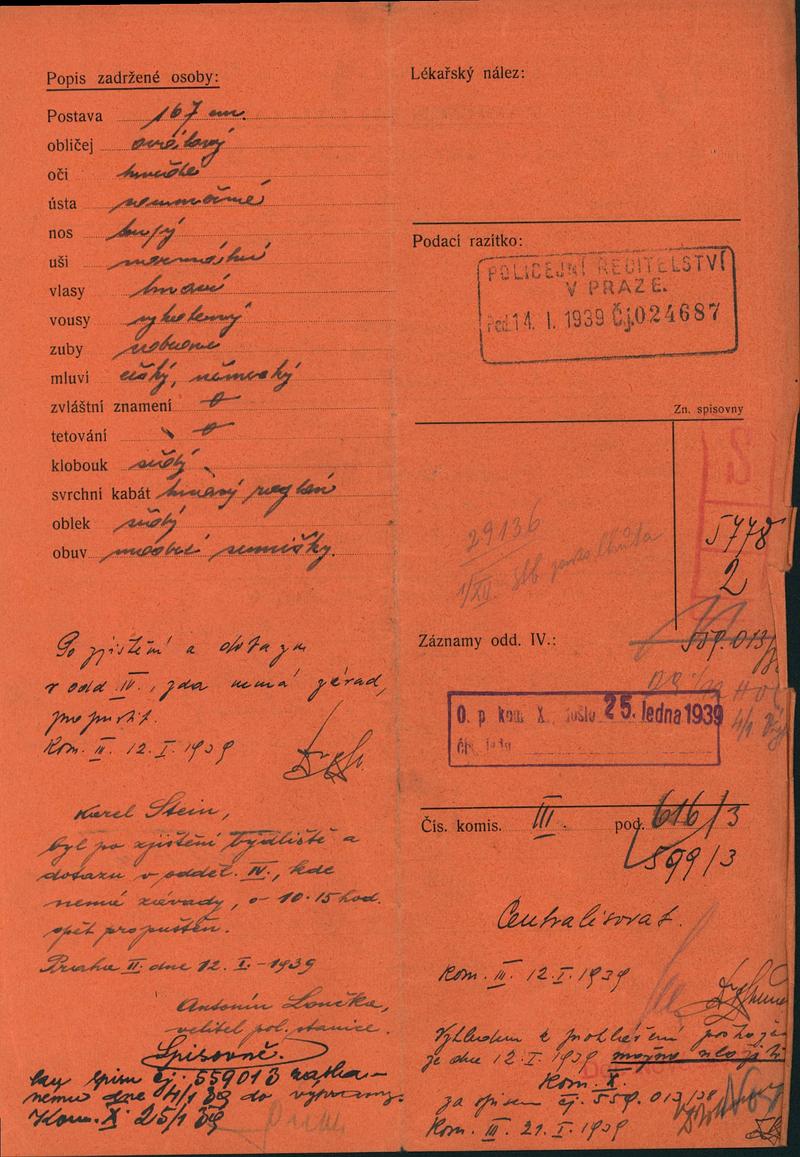 Popis zadržené osoby:
Postava 167 cm.
obličej oválový
oči hnědé
ústa
nos
uši normální
vlasy tmavé
vousy vyholený
zuby
mluví český, německý
zvláštní znamení 0
tetování 0
klobouk šedý
svrchní kabát tmavý raglan
oblek šedý
obuv semišky.
Po zjištění a dotazu
v odd. IV., zda nemá závad,
propustit.
Kom. III. 12. I. 1939
Karel Stein,
byl po zjištění bydliště a
dotazu v odděl. IV., kde
nemá závady, o 10.15 hod.
opět propuštěn.
Praha II. dne 12. I. - 1939
Antonín Lončka,
velitel pol. stanice.
Spisovně.
spisu čj. 559013
dne 4/1 39 do
Kom. X 25/1 39
Lékařský nález:
Podací razítko:
POLICEJNÍ ŘEDITELSTVÍ
V PRAZE.
Pod. 14. I. 1939 Čj. 024687
Zn. spisovny
S
5778
2
29136
1/XII.
Záznamy odd. IV.:
559.013/
O. p. kom X. došlo 25. ledna 1939
čís. jedn.
Čís. komis. III. pod. 616/3
599/3
Centralisovat.
Kom. III. 12. I. 1939
Vzhledem k
ze dne 12. I. 1939 možno
Kom. X.
za spisem čj. 559.013/38
Kom. III. 21. I. 1939